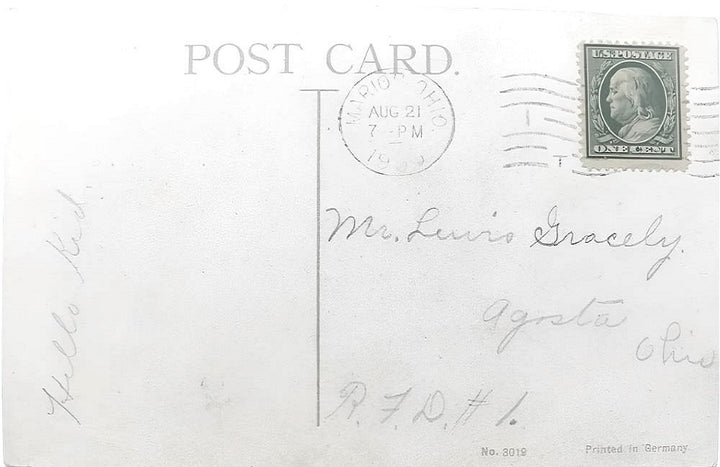 POST CARD.
U.S. POSTAGE
ONE CENT
MARION OHIO
AUG 21
7 - PM
Hello Kid.
Mr. Lewis Gracely.
Agosta
Ohio
R. F. D. # 1.
No. 3019
Printed in Germany